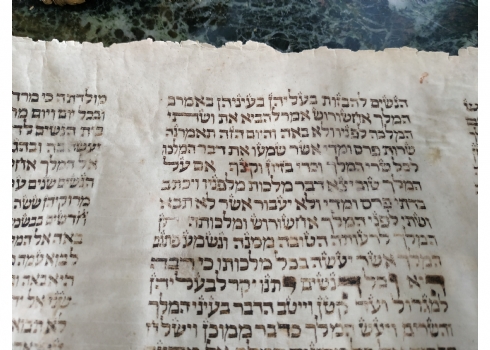 הנשים להבזות בעליהן בעיניהן באמרם
המלך אחשורוש אמר להביא את ושתי
המלכה לפניו ולא באה והיום הזה תאמרנה
שרות פרס ומדי אשר שמעו את דבר המלכה
לכל שרי המלך וכדי בזיון וקצף אם על
המלך טוב יצא דבר מלכות מלפניו ויכתב
בדתי פרס ומדי ולא יעבור אשר לא תבוא
ושתי לפני המלך אחשורוש ומלכותה
המלך לרעותה הטובה ממנה ונשמע פתגם
המלך אשר יעשה בכל מלכותו כי רבה
היא וכל הנשים יתנו יקר לבעליהן
למגדול ועד קטן וייטב הדבר בעיני המלך
והשרים ויעש המלך כדבר ממוכן וישלח
מולדתה כי
ובכל יום ויום
בית הנשים
יעשה בה
אל המלך
הנשים שנים
מרוקיהן ששה
חדשים
באה אל
היא באה